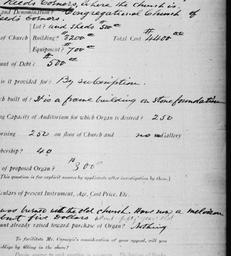 Reeds Corners, where the church is.
and Denomination? Congregational Church of
Reeds Corners.
Lot / and sheds $500
of Church Building? $3200.00 Total Cost $4400.00
Equipment? $700
out of Debt? $500.00
is it provided for? By subscription.
rch built of? It is a frame building on stone foundation
ing Capacity of Auditorium for which Organ is desired? 250
prising 250 on floor of Church and no in Gallery
mbership? 40
of proposed Organ? $300
(This question is for explicit answers by applicants after investigation by them.)
iculars of present Instrument, Age, Cost Price, Etc.
was burned with the old church. Have now a melodeon
Five Dollars
ount already raised toward purchase of Organ? Nothing
To facilitate Mr. Carnegie's consideration of your appeal, will you
oblige by filling in the above?